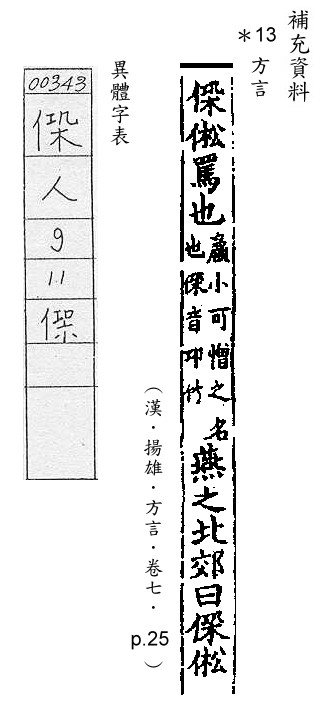 補充資料
＊13 方言
㑋倯罵也
羸小可憎之名
也㑋音邛竹
燕之北郊曰㑋倯
（漢．揚雄．方言．卷七．p.25）
異體字表
00343
㑋
人
9
11